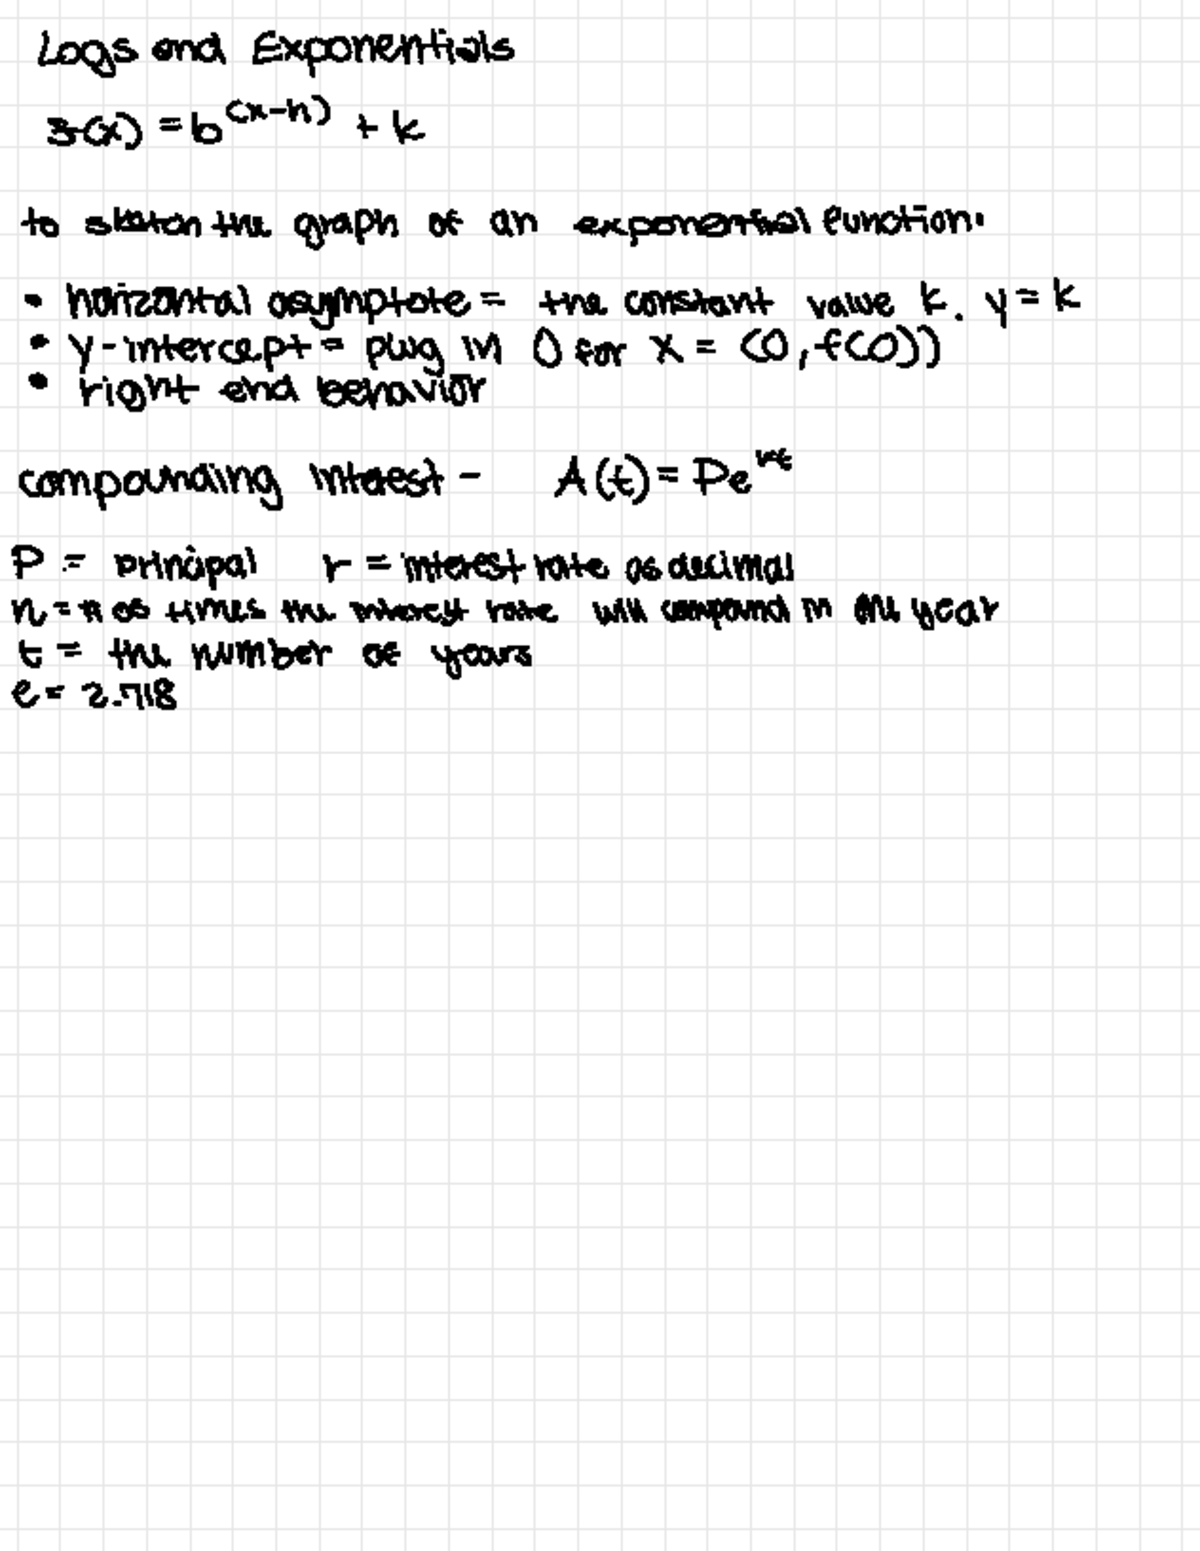 Logs and Exponentials
f(x) = b^(x-h) + k
to sketch the graph of an exponential function.
• horizontal asymptote = the constant value k. y = k
• y-intercept = plug in 0 for x = (0, f(0))
• right end behavior
compounding interest - A(t) = Pe^rt
P = principal r = interest rate as decimal
n = # of times the interest rate will compound in one year
t = the number of years
e = 2.718